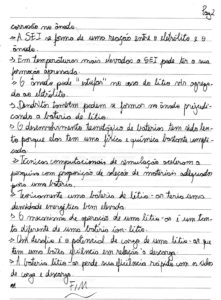 Pag 2
corrosão no ânodo.
→ A SEI se forma de uma reação entre o eletrólito e o
ânodo.
→ Em temperaturas mais elevadas a SEI pode ter a sua
formação apressada.
→ O ânodo pode "estufar" no caso do lítio vir agrega-
do ao eletrólito.
→ Dendritos também podem se formar no ânodo prejudi-
cando a bateria de lítio.
→ O desenvolvimento tecnológico de baterias tem sido len-
to porque elas tem uma física e química bastante compli-
cada.
→ Técnicas computacionais de simulação aceleram a
pesquisa com proporção de seleção de materiais adequados
para uma bateria.
→ Teoricamente uma bateria de lítio-ar teria uma
densidade energética bem elevada.
→ O mecanismo de operação de uma lítio-ar é um tan-
to diferente de uma bateria íon-lítio.
→ Um desafio é o potencial de carga de uma lítio-ar que
tem uma baixa eficiência em relação a descarga.
→ A bateria lítio-ar perde sua eficiência rápida com os ciclos
de carga e descarga.
FIM